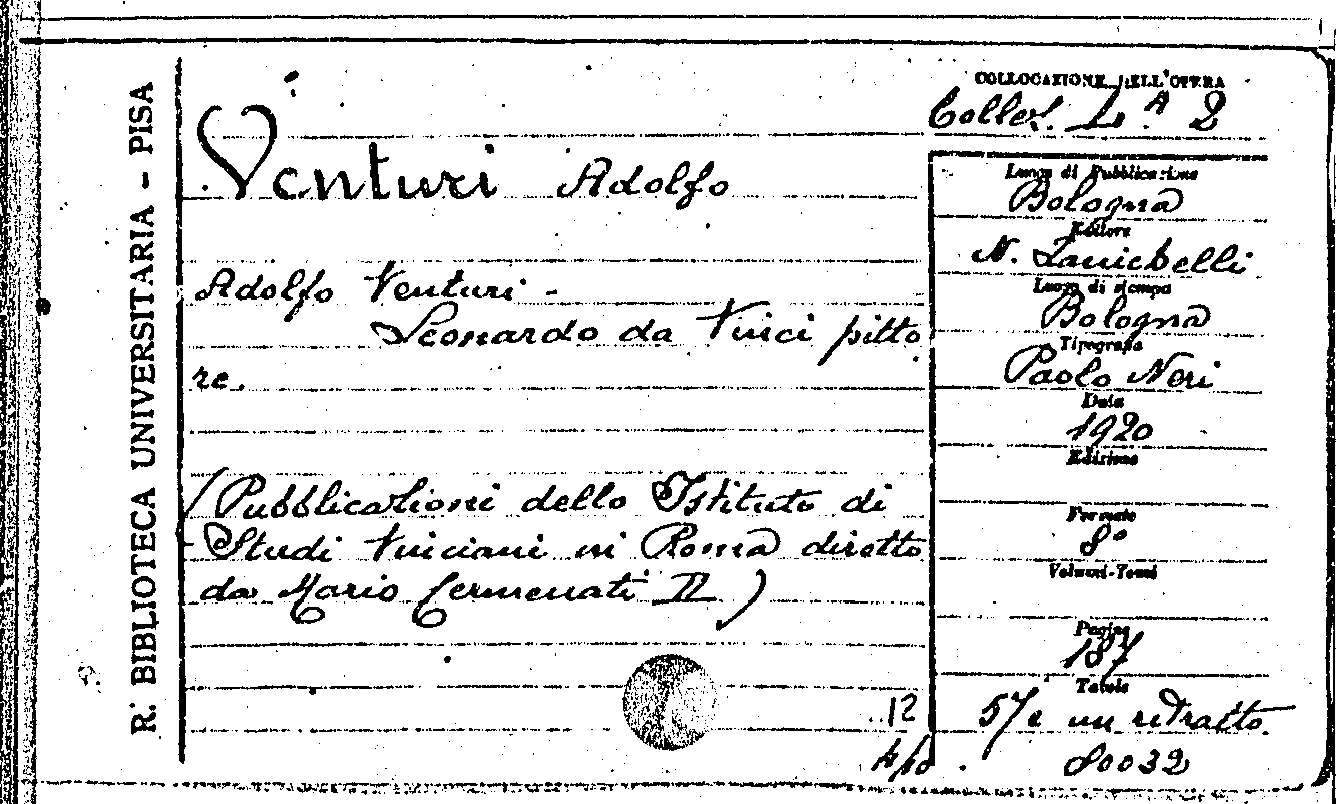 R. BIBLIOTECA UNIVERSITARIA - PISA
COLLOCAZIONE DELL'OPERA
Collez. L.A 2
Venturi Adolfo
Adolfo Venturi -
Leonardo da Vinci pitto
re.
(Pubblicazioni dello Istituto di
Studi Vinciani in Roma diretto
da Mario Cermenati II)
12
Luogo di Pubblicazione
Bologna
Editore
N. Zanichelli
Luogo di stampa
Bologna
Tipografia
Paolo Neri
Data
1920
Edizione
Formato
8°
Volumi-Tomi
Pagine
187
Tavole
57 e un ritratto
80032